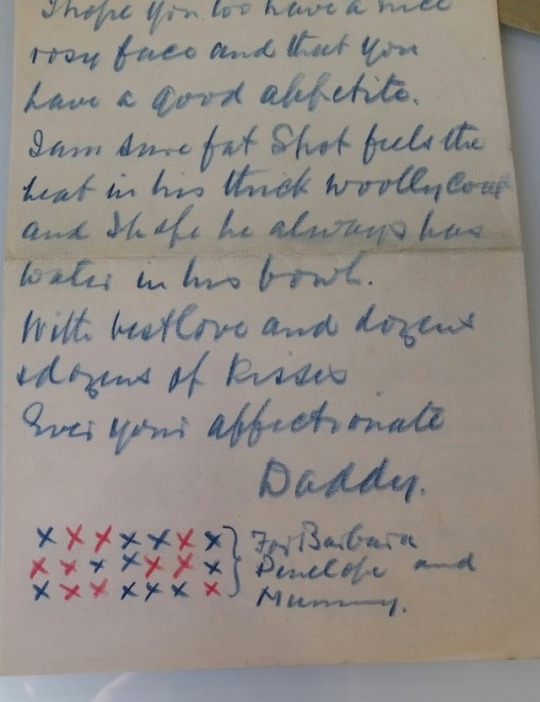 I hope you too have a nice
rosy face and that you
have a good appetite.
I am sure fat Spot feels the
heat in his thick woolly coat
and I hope he always has
water in his bowl.
With best love and dozens
& dozens of kisses
Ever your affectionate
Daddy.
x x x x x x x } For Barbara
x x x x x x x } Penelope and
x x x x x x x } Mummy.